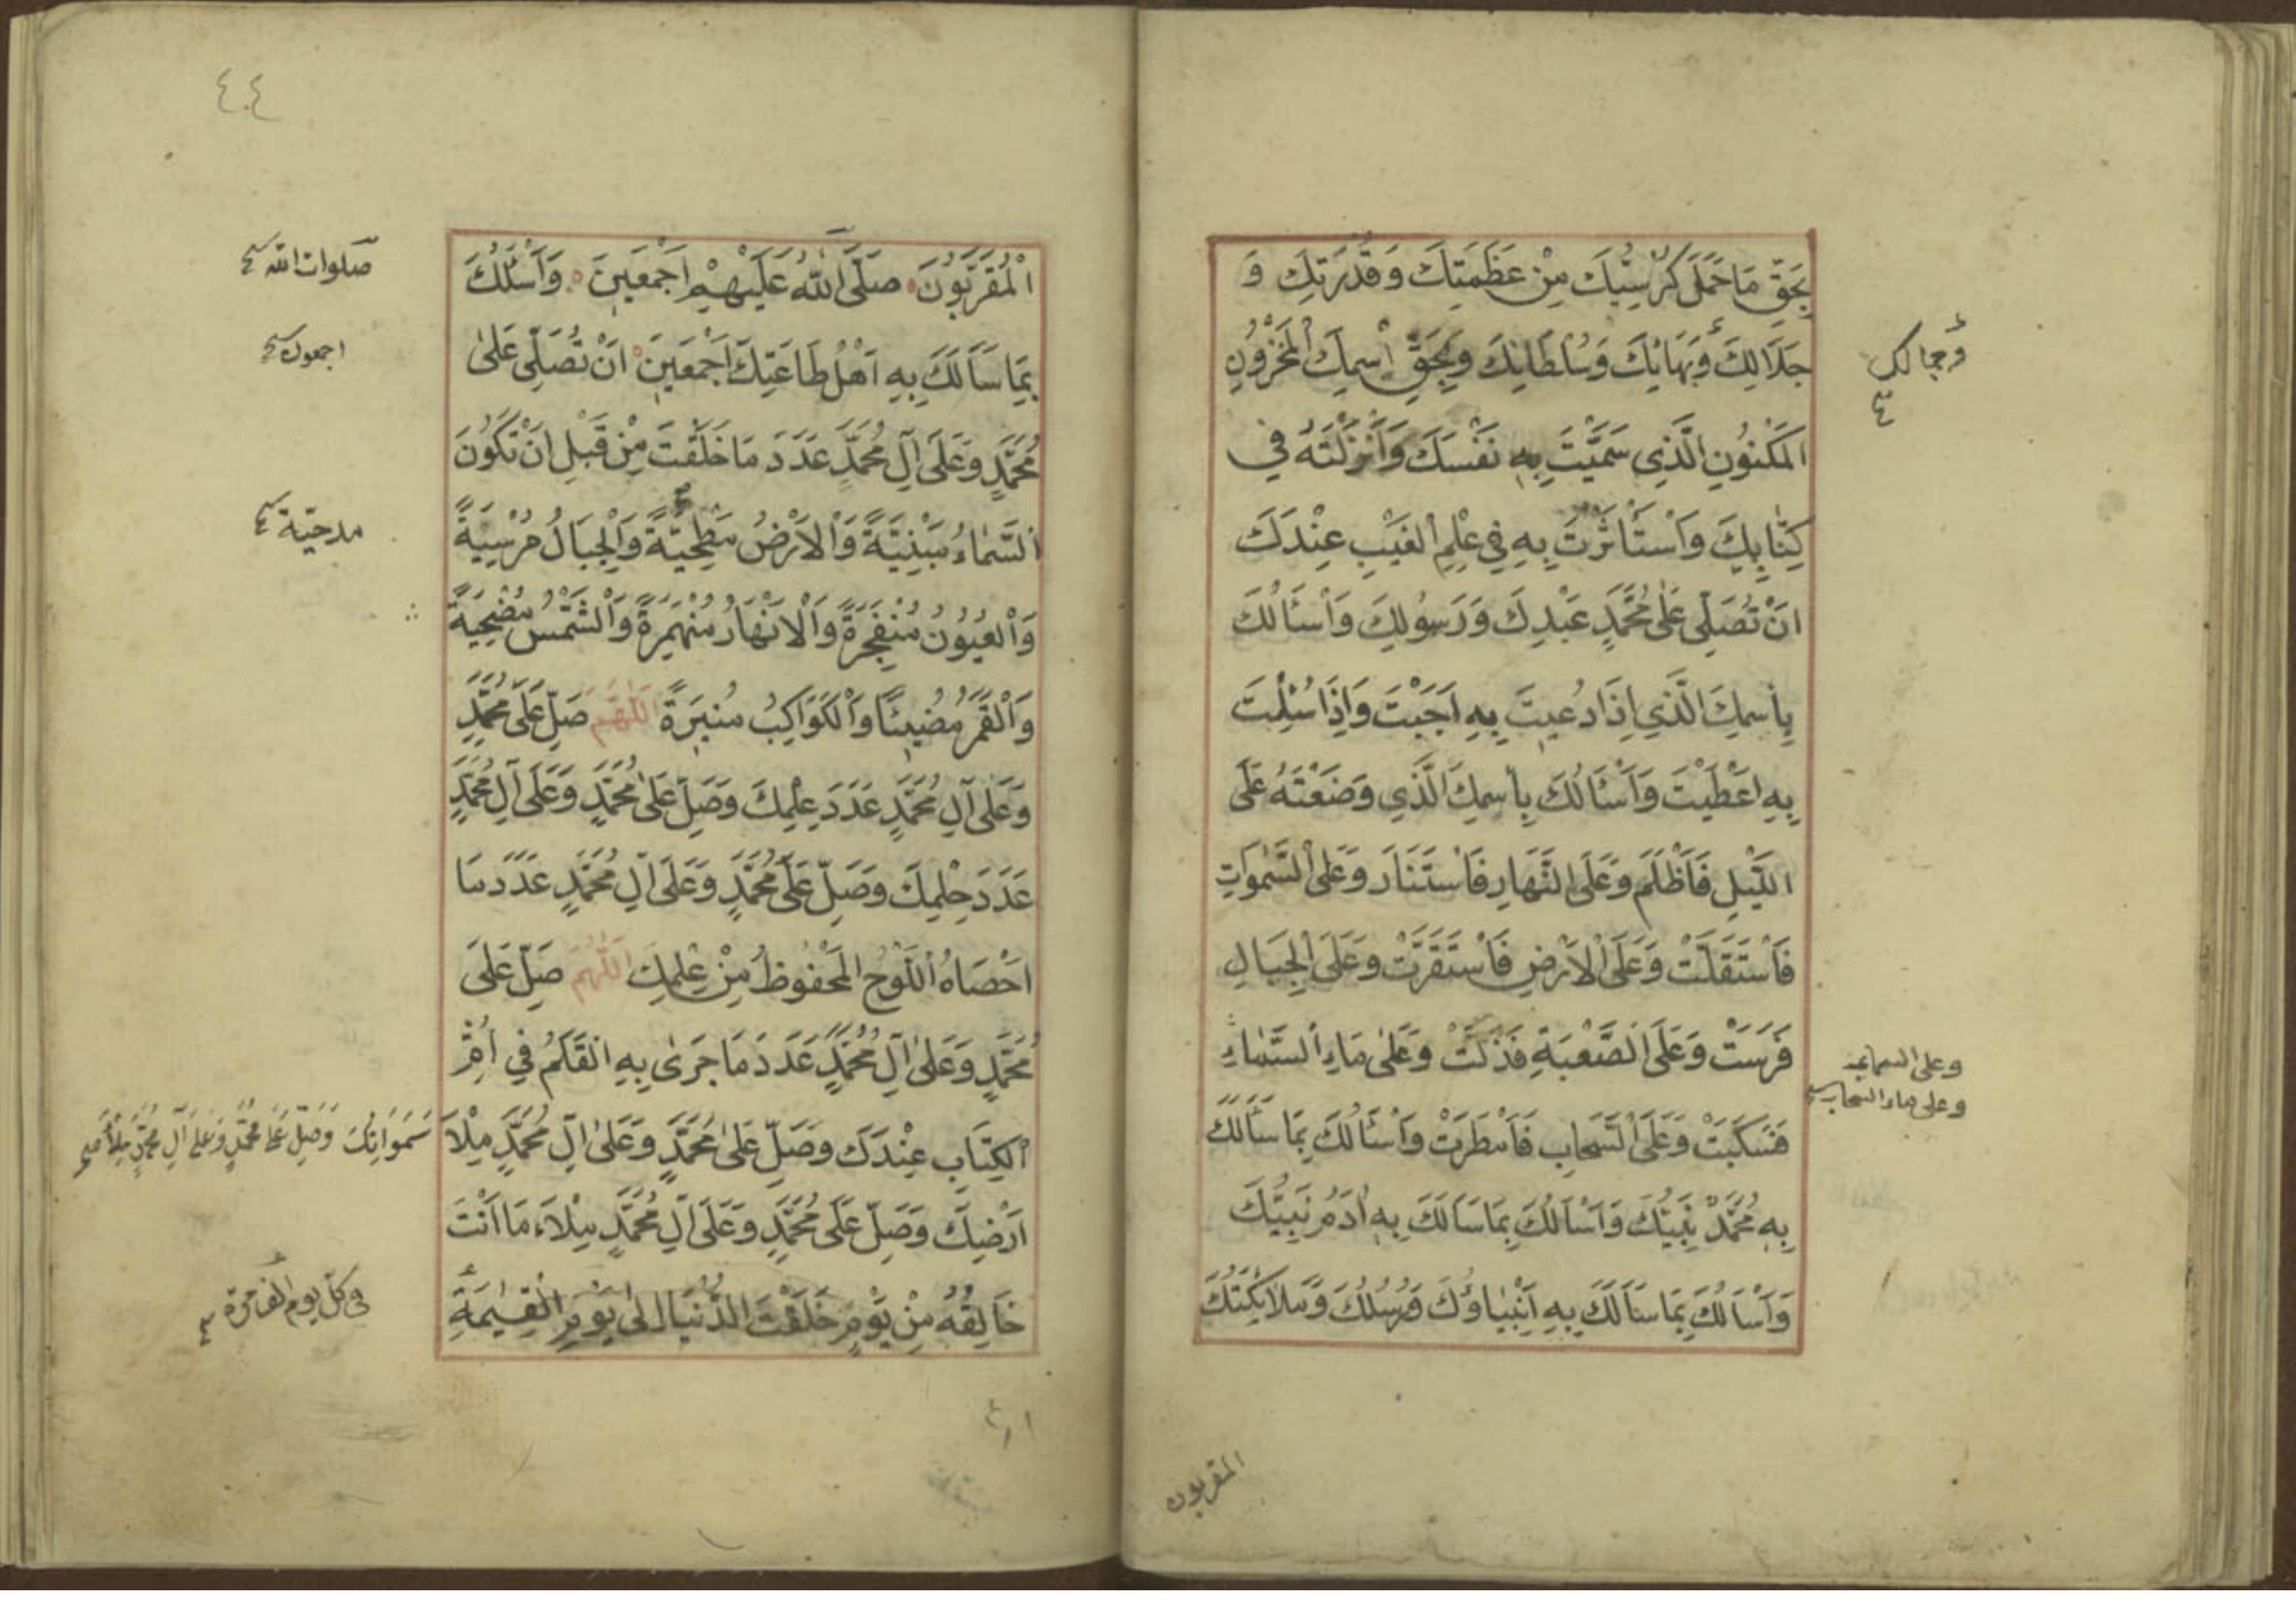 بِحَقِّ مَا حَمَلَ كُرْسِيُّكَ مِنْ عَظَمَتِكَ وَقُدْرَتِكَ وَ
جَلَالِكَ وَبَهَائِكَ وَسُلْطَانِكَ وَبِحَقِّ اسْمِكَ الْمَخْزُونِ
وجمالك
الْمَكْنُونِ الَّذِي سَمَّيْتَ بِهِ نَفْسَكَ وَأَنْزَلْتَهُ فِي
كِتَابِكَ وَاسْتَأْثَرْتَ بِهِ فِي عِلْمِ الْغَيْبِ عِنْدَكَ
اَنْ تُصَلِّيَ عَلَى مُحَمَّدٍ عَبْدِكَ وَرَسُولِكَ وَاَسْئَالُكَ
بِأسْمِكَ الَّذِي اِذَا دُعِيتَ بِهِ اَجَبْتَ وَاِذَا سُئِلْتَ
بِهِ اَعْطَيْتَ وَاَسْئَالُكَ بِأسْمِكَ الَّذِي وَضَعْتَهُ عَلَى
اللَّيْلِ فَاَظْلَمَ وَعَلَى النَّهَارِ فَاسْتَنَارَ وَعَلَى السَّمٰوَاتِ
فَاسْتَقَلَّتْ وَعَلَى الْاَرْضِ فَاسْتَقَرَّتْ وَعَلَى الْجِبَالِ
فَرَسَتْ وَعَلَى الصَّعْبَةِ فَذَلَّتْ وَعَلَى مَاءِ السَّمَاءِ
وعلى ماء السحاب
فَسَكَبَتْ وَعَلَى السَّحَابِ فَاَمْطَرَتْ وَاَسْئَالُكَ بِمَا سَأَلَكَ
بِهِ مُحَمَّدٌ نَبِيُّكَ وَاَسْاَلُكَ بِمَا سَاَلَكَ بِهِ اٰدَمُ نَبِيُّكَ
وَاَسْاَلُكَ بِمَا سَاَلَكَ بِهِ اَنْبِيَاؤُكَ وَرُسُلُكَ وَمَلَائِكَتُكَ
المقربون
٤٤
الْمُقَرَّبُونَ صَلَّى اللّٰهُ عَلَيْهِمْ اَجْمَعِينَ وَاَسْئَلُكَ
صلوات الله
بِمَا سَاَلَكَ بِهِ اَهْلُ طَاعَتِكَ اَجْمَعِينَ اَنْ تُصَلِّيَ عَلٰى
اجمعون
مُحَمَّدٍ وَعَلَى آلِ مُحَمَّدٍ عَدَدَ مَا خَلَقْتَ مِنْ قَبْلِ اَنْ تَكُونَ
السَّمَاءُ مَبْنِيَّةً وَالْاَرْضُ مَطْحِيَّةً وَالْجِبَالُ مُرْسِيَةً
مدحيّة
وَالْعُيُونُ مُنْفَجِرَةً وَالْاَنْهَارُ مُنْهَمِرَةً وَالشَّمْسُ مُضْحِيَةً
وَالْقَمَرُ مُضِيئًا وَالْكَوَاكِبُ مُنِيرَةً اَللّٰهُمَّ صَلِّ عَلَى مُحَمَّدٍ
وَعَلٰى آلِ مُحَمَّدٍ عَدَدَ عِلْمِكَ وَصَلِّ عَلٰى مُحَمَّدٍ وَعَلَى آلِ مُحَمَّدٍ
عَدَدَ حِلْمِكَ وَصَلِّ عَلَى مُحَمَّدٍ وَعَلَى آلِ مُحَمَّدٍ عَدَدَ مَا
اَحْصَاهُ اللَّوْحُ الْمَحْفُوظُ مِنْ عِلْمِكَ اَللّٰهُمَّ صَلِّ عَلَى
مُحَمَّدٍ وَعَلٰى آلِ مُحَمَّدٍ عَدَدَ مَا جَرٰى بِهِ الْقَلَمُ فِي اُمِّ
الْكِتَابِ عِنْدَكَ وَصَلِّ عَلٰى مُحَمَّدٍ وَعَلٰى آلِ مُحَمَّدٍ مِلْاَ
سَمٰوَاتِكَ وَصَلِّ عَلَى مُحَمَّدٍ وَعَلَى آلِ مُحَمَّدٍ مِلْأَ
اَرْضِكَ وَصَلِّ عَلَى مُحَمَّدٍ وَعَلَى آلِ مُحَمَّدٍ مِلْاَءَ مَا اَنْتَ
خَالِقُهُ مِنْ يَوْمِ خَلَقْتَ الدُّنْيَا اِلٰى يَوْمِ الْقِيٰمَةِ
فى كل يوم الف مرة